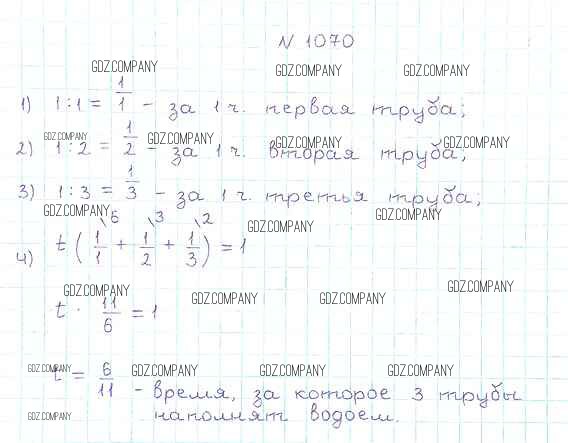 N 1070
GDZ.COMPANY GDZ.COMPANY GDZ.COMPANY
1) 1:1 = 1/1 - за 1 ч. первая труба;
GDZ.COMPANY GDZ.COMPANY GDZ.COMPANY GDZ.COMPANY
2) 1:2 = 1/2 - за 1 ч. вторая труба;
3) 1:3 = 1/3 - за 1 ч. третья труба;
GDZ.COMPANY GDZ.COMPANY GDZ.COMPANY
4) t (1/1 \6 + 1/2 \3 + 1/3 \2) = 1
GDZ.COMPANY GDZ.COMPANY GDZ.COMPANY GDZ.COMPANY
t · 11/6 = 1
GDZ.COMPANY GDZ.COMPANY GDZ.COMPANY GDZ.COMPANY
t = 6/11 - время, за которое 3 трубы
GDZ.COMPANY наполнят водоем.